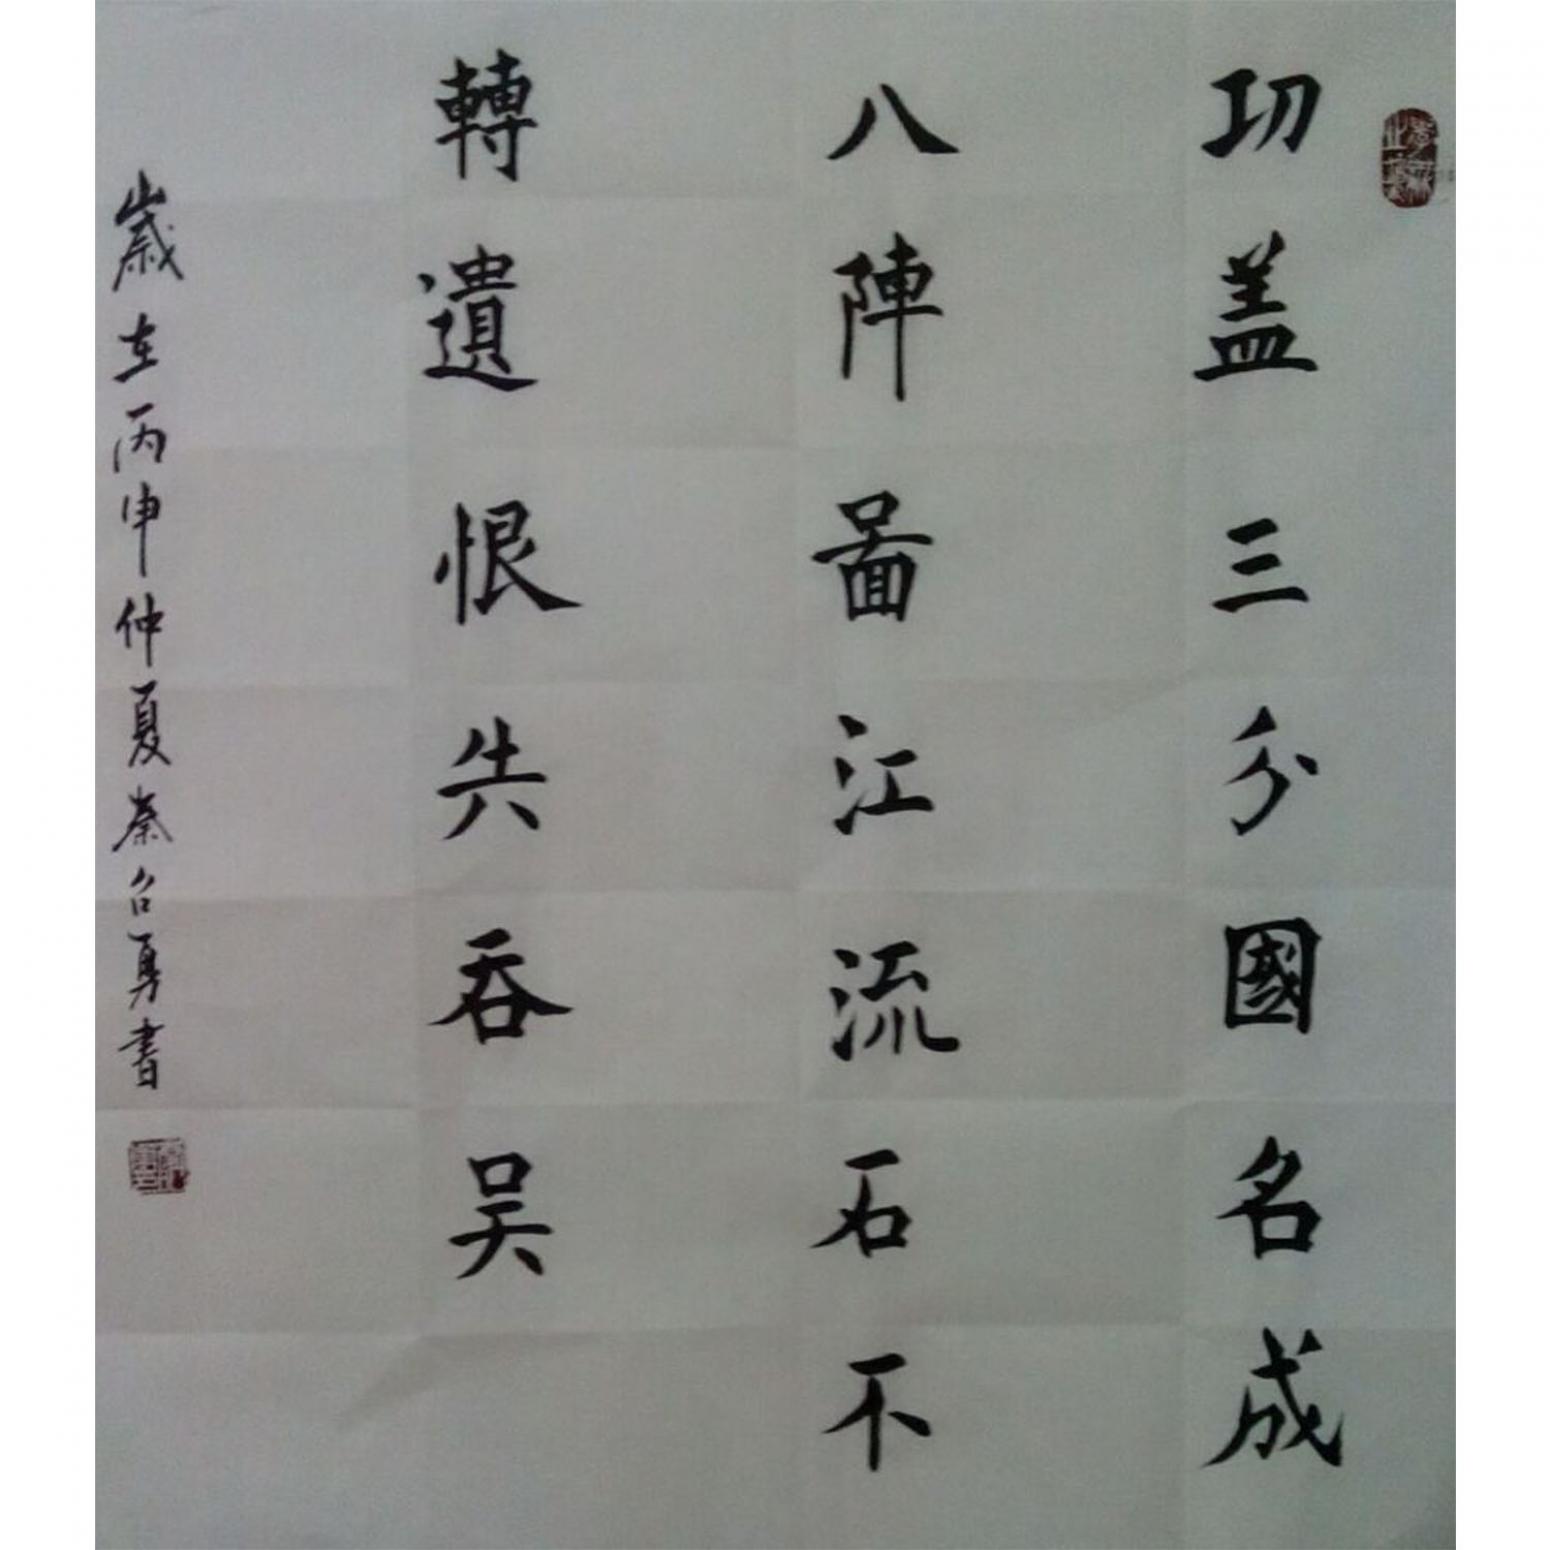 功盖三分國名成
八陣啚江流石不
轉遺恨失吞吴
歲在丙申仲夏秦召勇書